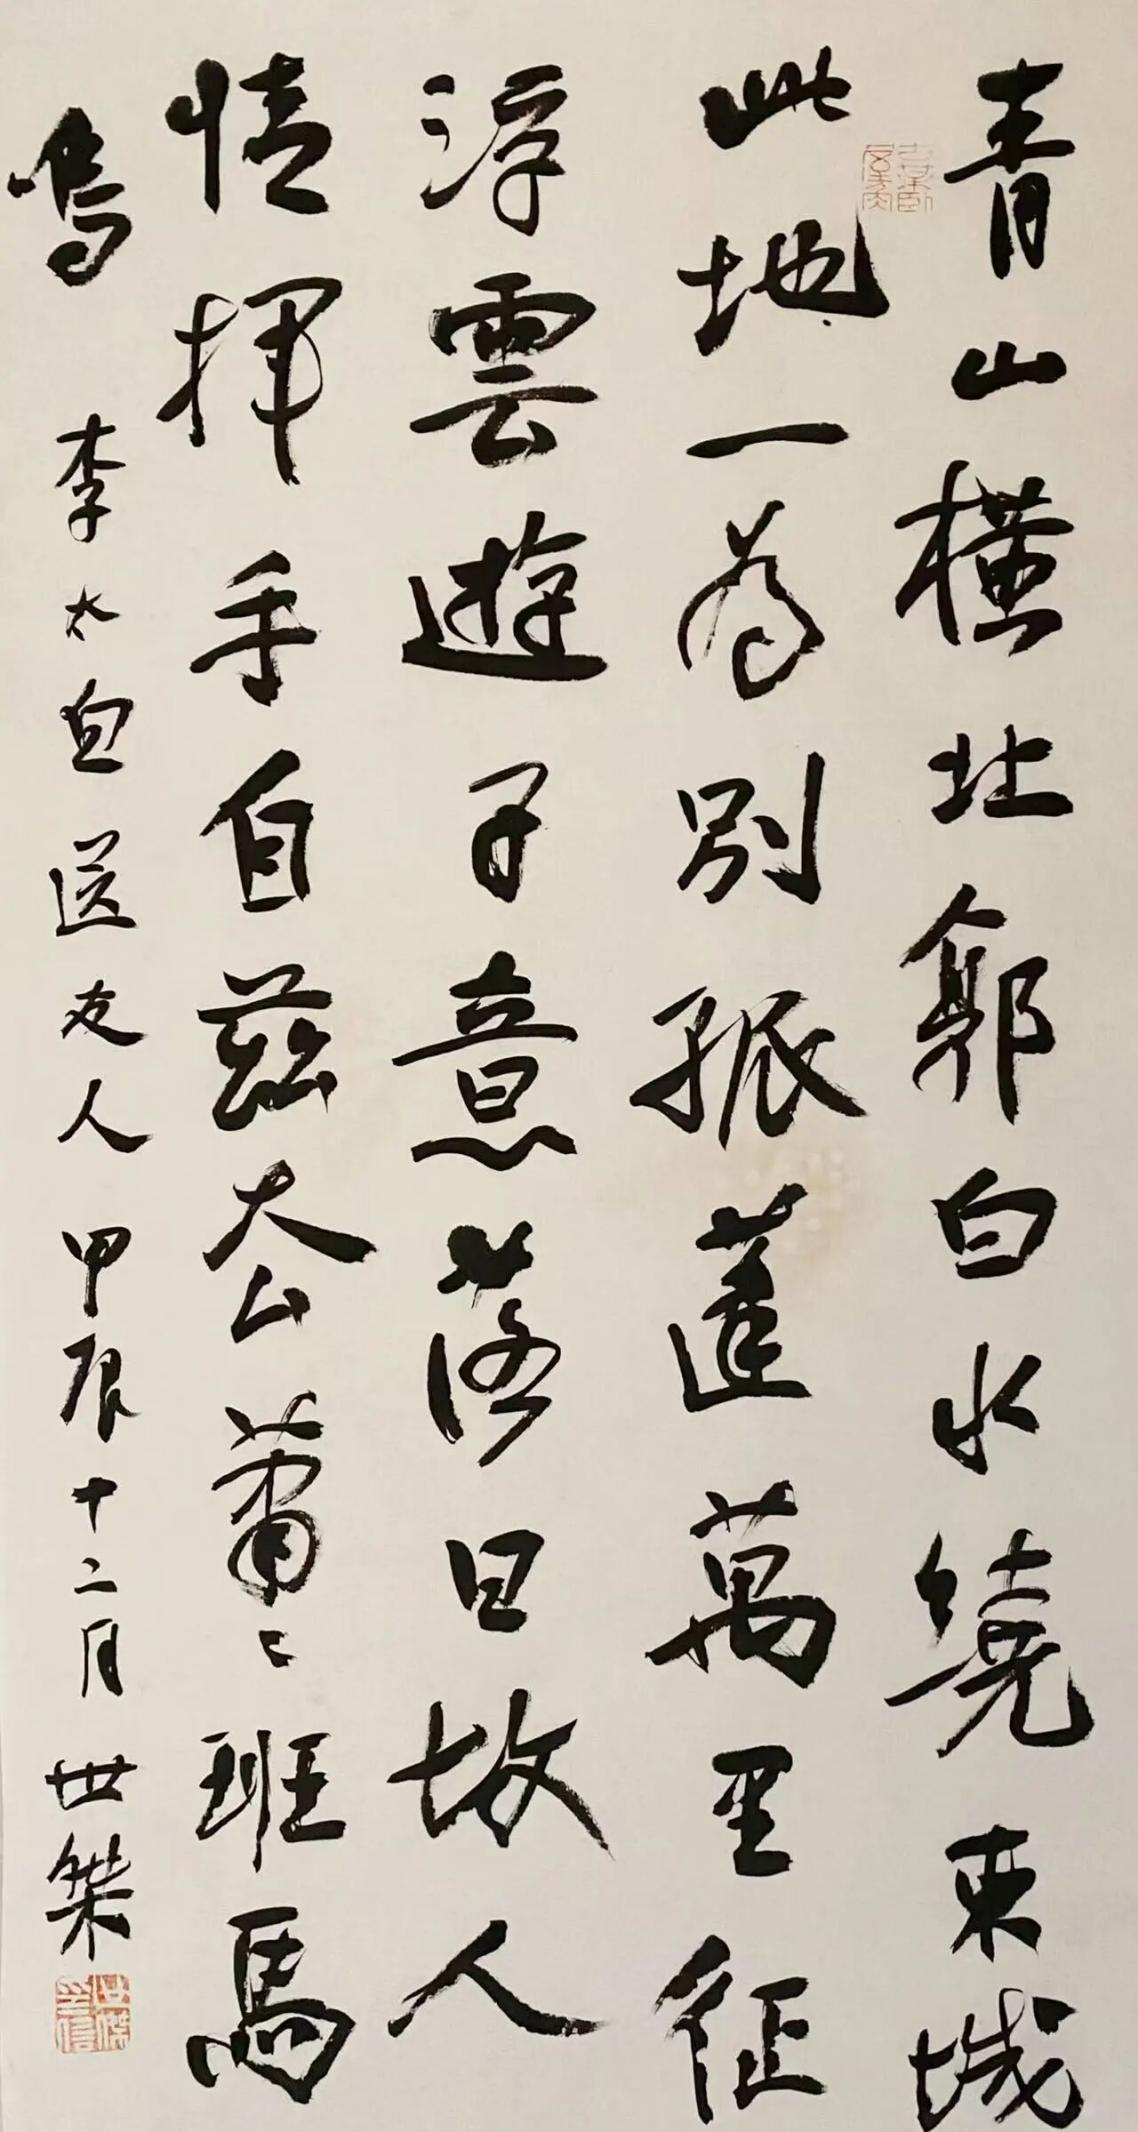 青山橫北郭白水繞東城
此地一為別孤蓬萬里征
浮雲遊子意落日故人
情揮手自茲去蕭〻班馬
鳴 李太白送友人 甲辰十二月 世桀
世傑